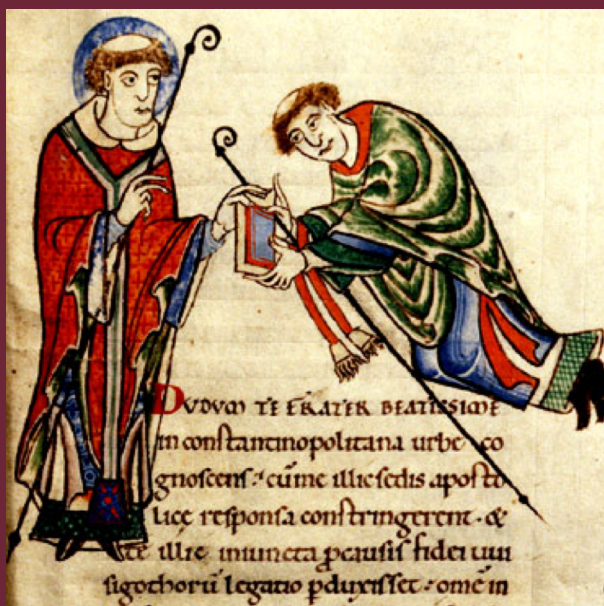 DUDUM TE FRATER BEATISSIME
in constantinopolitana urbe co
gnoscens: cũ me illic sedis aposto
lice responsa constringerent. &
te illic iniuncta ꝓ causis fidei uui
sigothorũ legatio ꝑduxisset: omẽ in